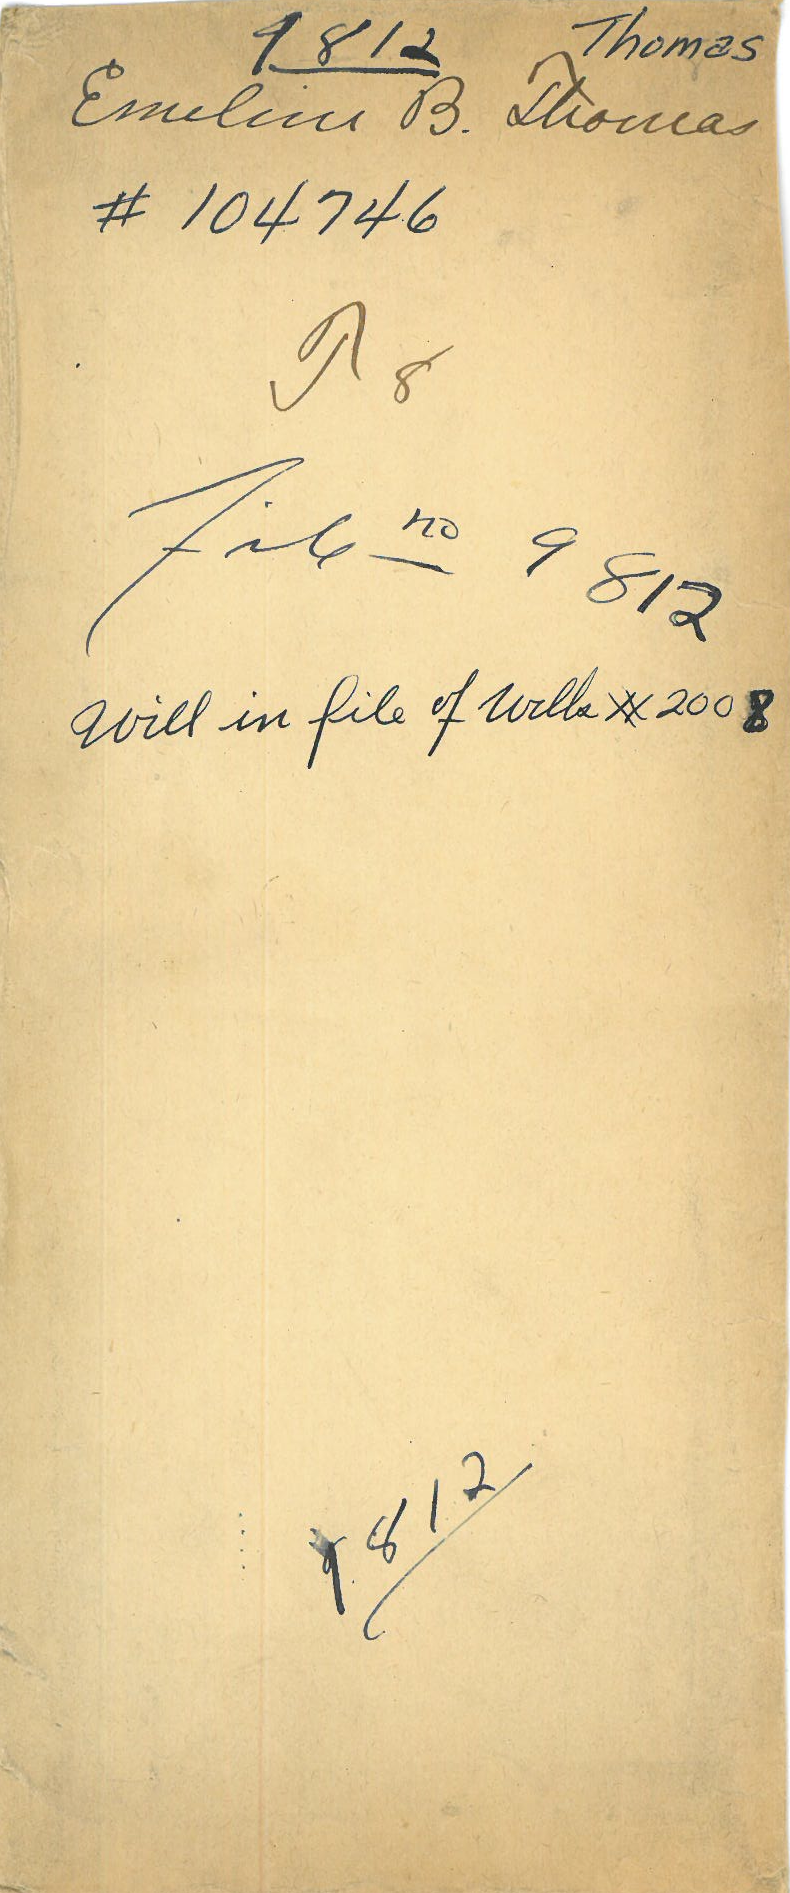 9812 Thomas
Emeline B. Thomas
# 104746
T 8
File no 9812
Will in file of Wills # 2008
9812